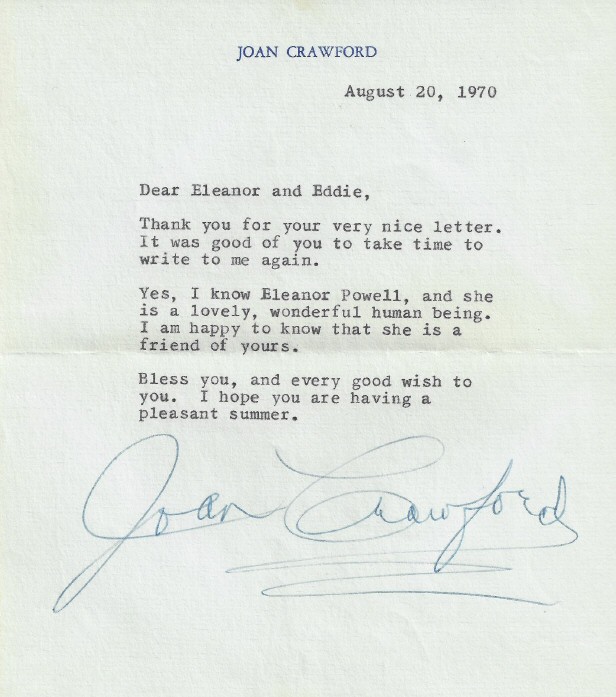 JOAN CRAWFORD
August 20, 1970
Dear Eleanor and Eddie,
Thank you for your very nice letter.
It was good of you to take time to
write to me again.
Yes, I know Eleanor Powell, and she
is a lovely, wonderful human being.
I am happy to know that she is a
friend of yours.
Bless you, and every good wish to
you.  I hope you are having a
pleasant summer.
Joan Crawford